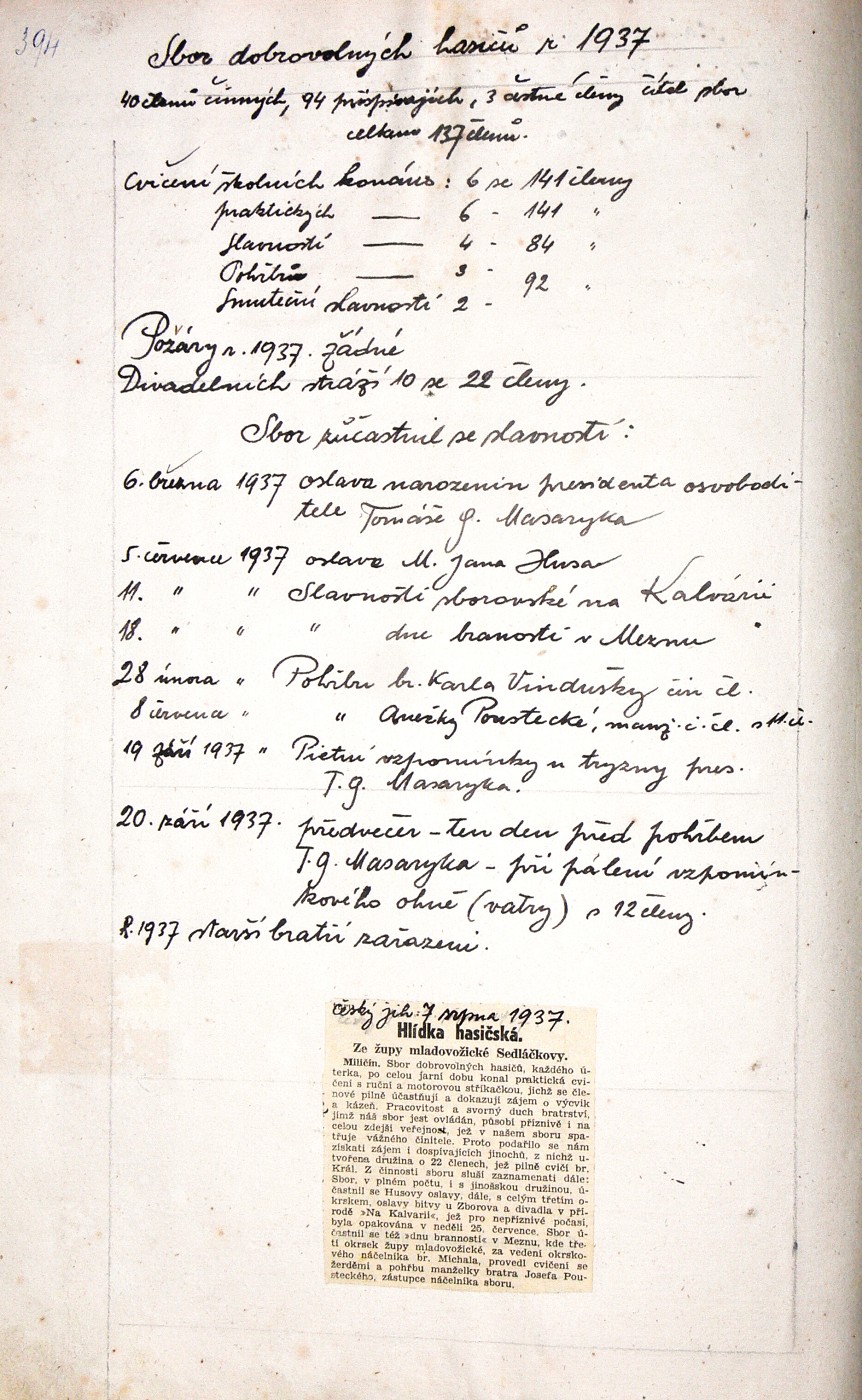 394
Sbor dobrovolných hasičů r 1937
40 členů činných, 94 přispívajících, 3 čestné členy čítal sbor
celkem 137 členů.
Cvičení školních konáno : 6 se 141 členy
praktických — 6 - 141 "
Slavností — 4 - 84 "
Pohřbů — 3 -
92 "
Smuteční slavností 2 -
Požáry r. 1937. žádné
Divadelních stráží 10 se 22 členy.
Sbor zúčastnil se slavností :
6. března 1937 oslava narozenin presidenta osvobodi-
tele Tomáše G. Masaryka
5. července 1937 oslava M. Jana Husa
11. " " Slavnosti zborovské na Kalvárii
18. " " " dne branosti v Meznu
28 února " Pohřbu br. Karla Vindušky čin čl.
8 června " " Anežky Poustecké, manž. č. čl. s 11 čl.
19 září 1937 " Pietní vzpomínky u tryzny pres.
T. G. Masaryka.
20. září 1937. předvečer – ten den před pohřbem
T. G. Masaryka – při pálení vzpomín-
kového ohně (vatry) s 12 členy.
R. 1937 starší bratří zařazeni.
český jih: 7 srpna 1937.
Hlídka hasičská.
Ze župy mladovožické Sedláčkovy.
Miličín. Sbor dobrovolných hasičů, každého ú-
terka, po celou jarní dobu konal praktická cvi-
čení s ruční a motorovou stříkačkou, jichž se čle-
nové pilně účastňují a dokazují zájem o výcvik
a kázeň. Pracovitost a svorný duch bratrství,
jímž náš sbor jest ovládán, působí příznivě i na
celou zdejší veřejnost, jež v našem sboru spa-
třuje vážného činitele. Proto podařilo se nám
získati zájem i dospívajících jinochů, z nichž u-
tvořena družina o 22 členech, jež pilně cvičí br.
Král. Z činnosti sboru sluší zaznamenati dále:
Sbor, v plném počtu, i s jinošskou družinou, ú-
častnil se Husovy oslavy, dále, s celým třetím o-
krskem, oslavy bitvy u Zborova a divadla v pří-
rodě »Na Kalvarii«, jež pro nepříznivé počasí,
byla opakována v neděli 25. července. Sbor ú-
častnil se též »dnu brannosti« v Meznu, kde tře-
tí okrsek župy mladovožické, za vedení okrsko-
vého náčelníka br. Michala, provedl cvičení se
žerděmi a pohřbu manželky bratra Josefa Pou-
steckého, zástupce náčelníka sboru.